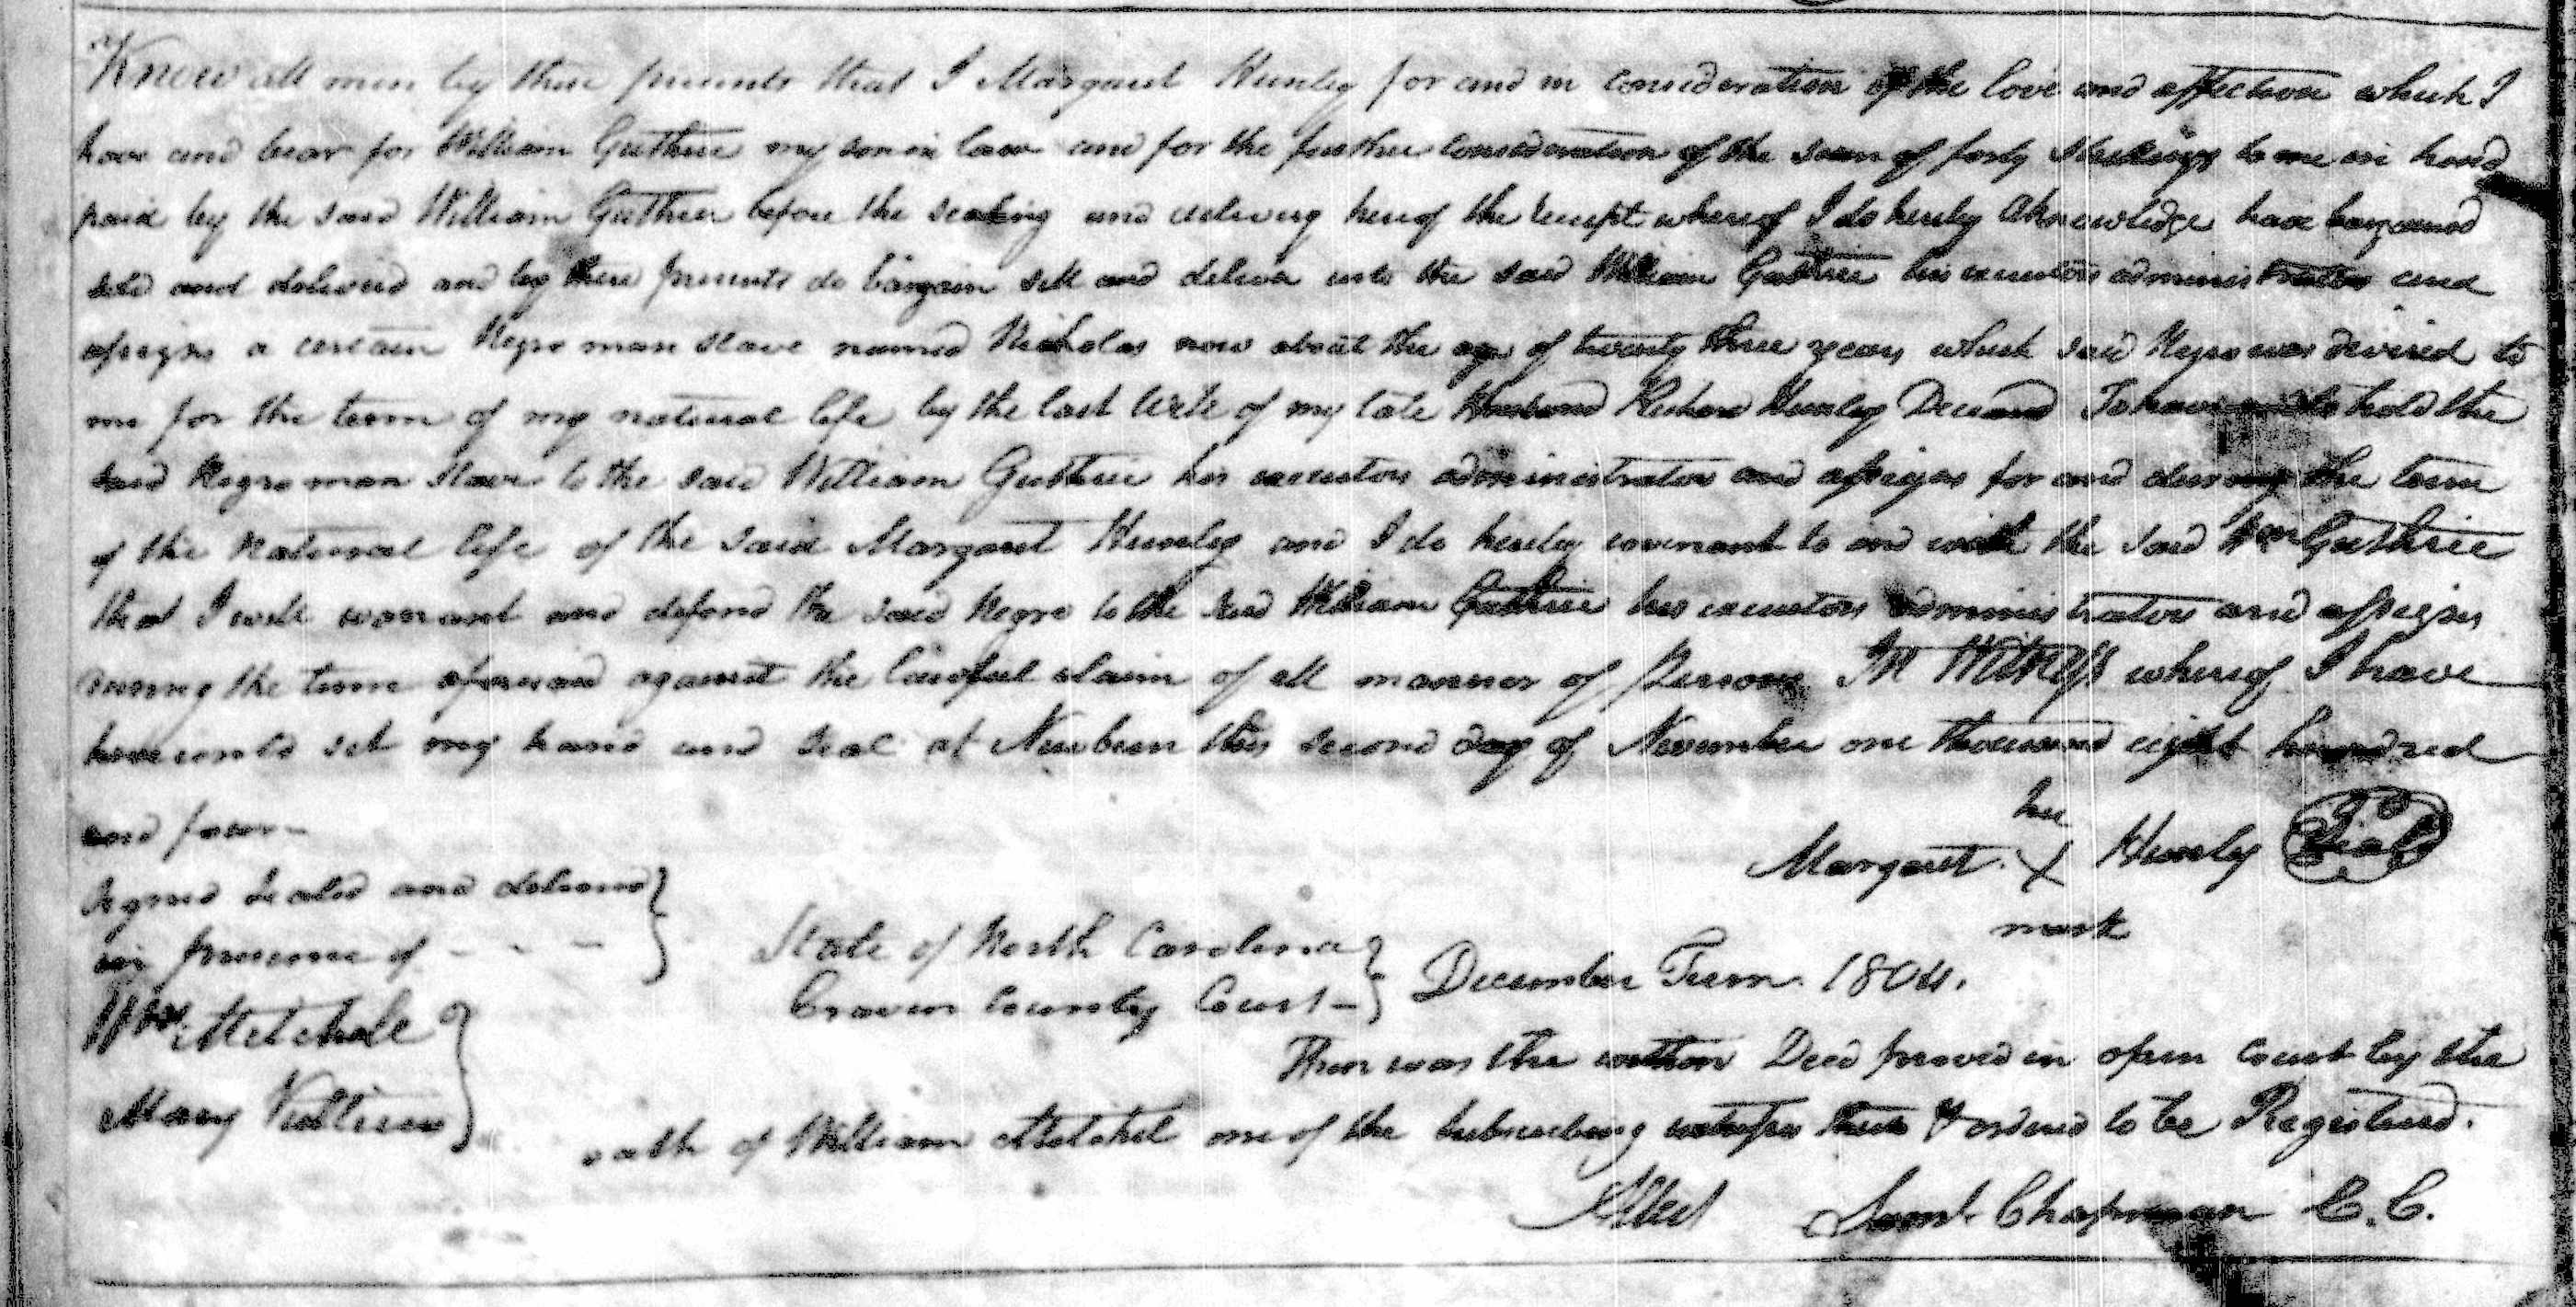 Know all men by these presents that I Margaret Hunley for and in consideration of the love and affection which I
have and bear for William Guthrie my son in law and for the further consideration of the sum of forty shillings to me in hand
paid by the said William Guthrie before the sealing and delivery hereof the receipt whereof I do hereby acknowledge have bargained
sold and delivered and by these presents do bargain sell and deliver unto the said William Guthrie his executors administrators and
assigns a certain Negro man slave named Nicholas now about the age of twenty three years which said Negro was devised to
me for the term of my natural life by the last will of my late Husband Richard Hunley Deceased To have and to hold the
said Negro man slave to the said William Guthrie his executors administrators and assigns for and during the term
of the natural life of the said Margaret Hunley and I do hereby covenant to and with the said Wm Guthrie
that I will warrant and defend the said Negro to the said William Guthrie his executors administrators and assigns
during the term aforesaid against the lawful claim of all manner of Persons In Witness whereof I have
hereunto set my hand and seal at Newbern this second day of November one thousand eight hundred
and four
her
Margaret X Hunley Seal
mark
Signed Sealed and delivered
in presence of - - -
Wm Mitchell
Mary
State of North Carolina
Craven County Court
December Term 1804.
Then was the within Deed proved in open court by the
oath of William Mitchel one of the subscribing witnesses & ordered to be Registered.
Attest Saml. Chapman C.C.